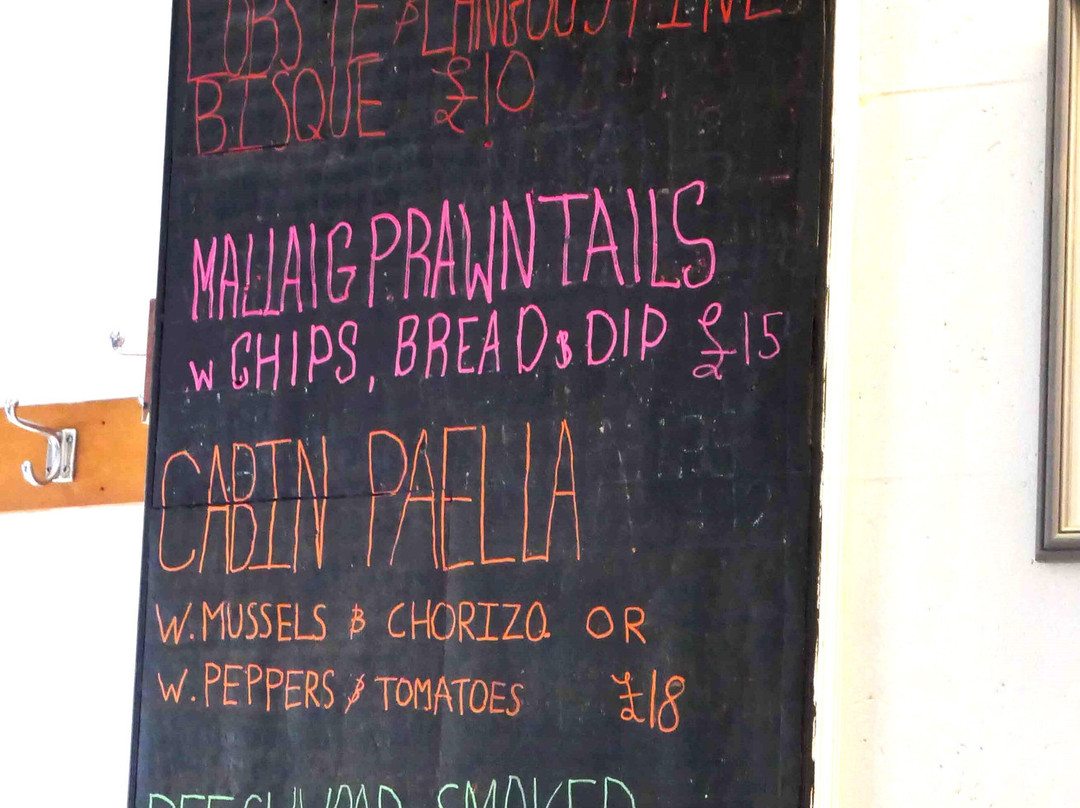 LOBSTE & LANGOUSTINE
BISQUE £10
MALLAIG PRAWN TAILS
W CHIPS, BREAD & DIP £15
CABIN PAELLA
W. MUSSELS & CHORIZO OR
W. PEPPERS & TOMATOES £18
BEECHWOOD SMOKED